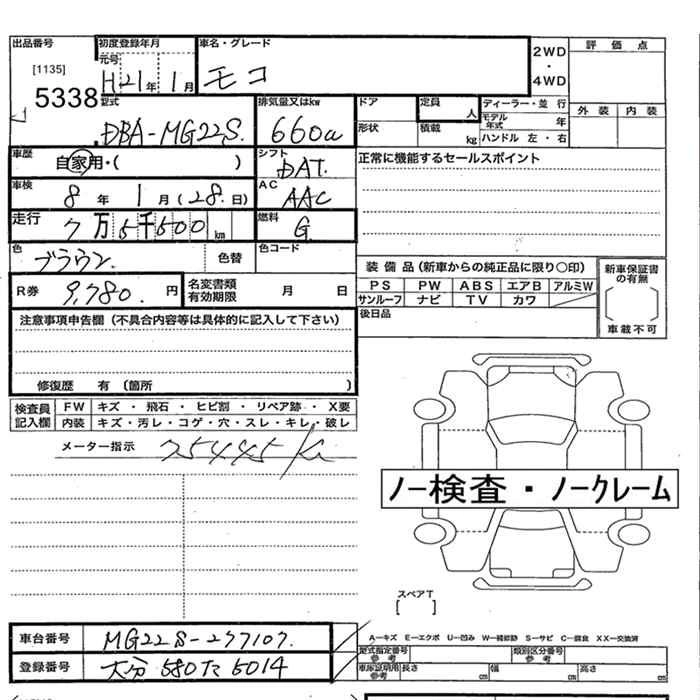 出品番号 初度登録年月 車名・グレード 2WD・4WD 評価点
[1135] 元号 H21年 1月 モコ
5338 外装 内装
型式 排気量又はkw ドア 定員 人 ディーラー・並行
DBA-MG22S 660cc 形状 積載 kg モデル年式 年
ハンドル 左・右
車歴 自家用・( ) シフト DAT 正常に機能するセールスポイント
車検 8年 1月(28日) AC AAC
走行 7万5千500km 燃料 G
色 ブラウン 色替 色コード
装備品(新車からの純正品に限り○印) 新車保証書の有無
R券 9,780.円 名変書類有効期限 月 日 PS PW ABS エアB アルミW
サンルーフ ナビ TV カワ
[ ]
車載不可
注意事項申告欄(不具合内容等は具体的に記入して下さい) 後日品
修復歴 有 (箇所 )
検査員記入欄 FW キズ・飛石・ヒビ割・リペア跡・X要
内装 キズ・汚レ・コゲ・穴・スレ・キレ・破レ
メーター指示 75445 Km
ノー検査・ノークレーム
スペアT
[ ]
車台番号 MG22S-237107.
A―キズ E―エクボ U―凹み W―補修跡 S―サビ C―腐食 XX―交換済
登録番号 大分580た5014
型式指定番号 参考 類別区分番号 参考
車庫証明用 参考 長さ cm 幅 cm 高さ cm